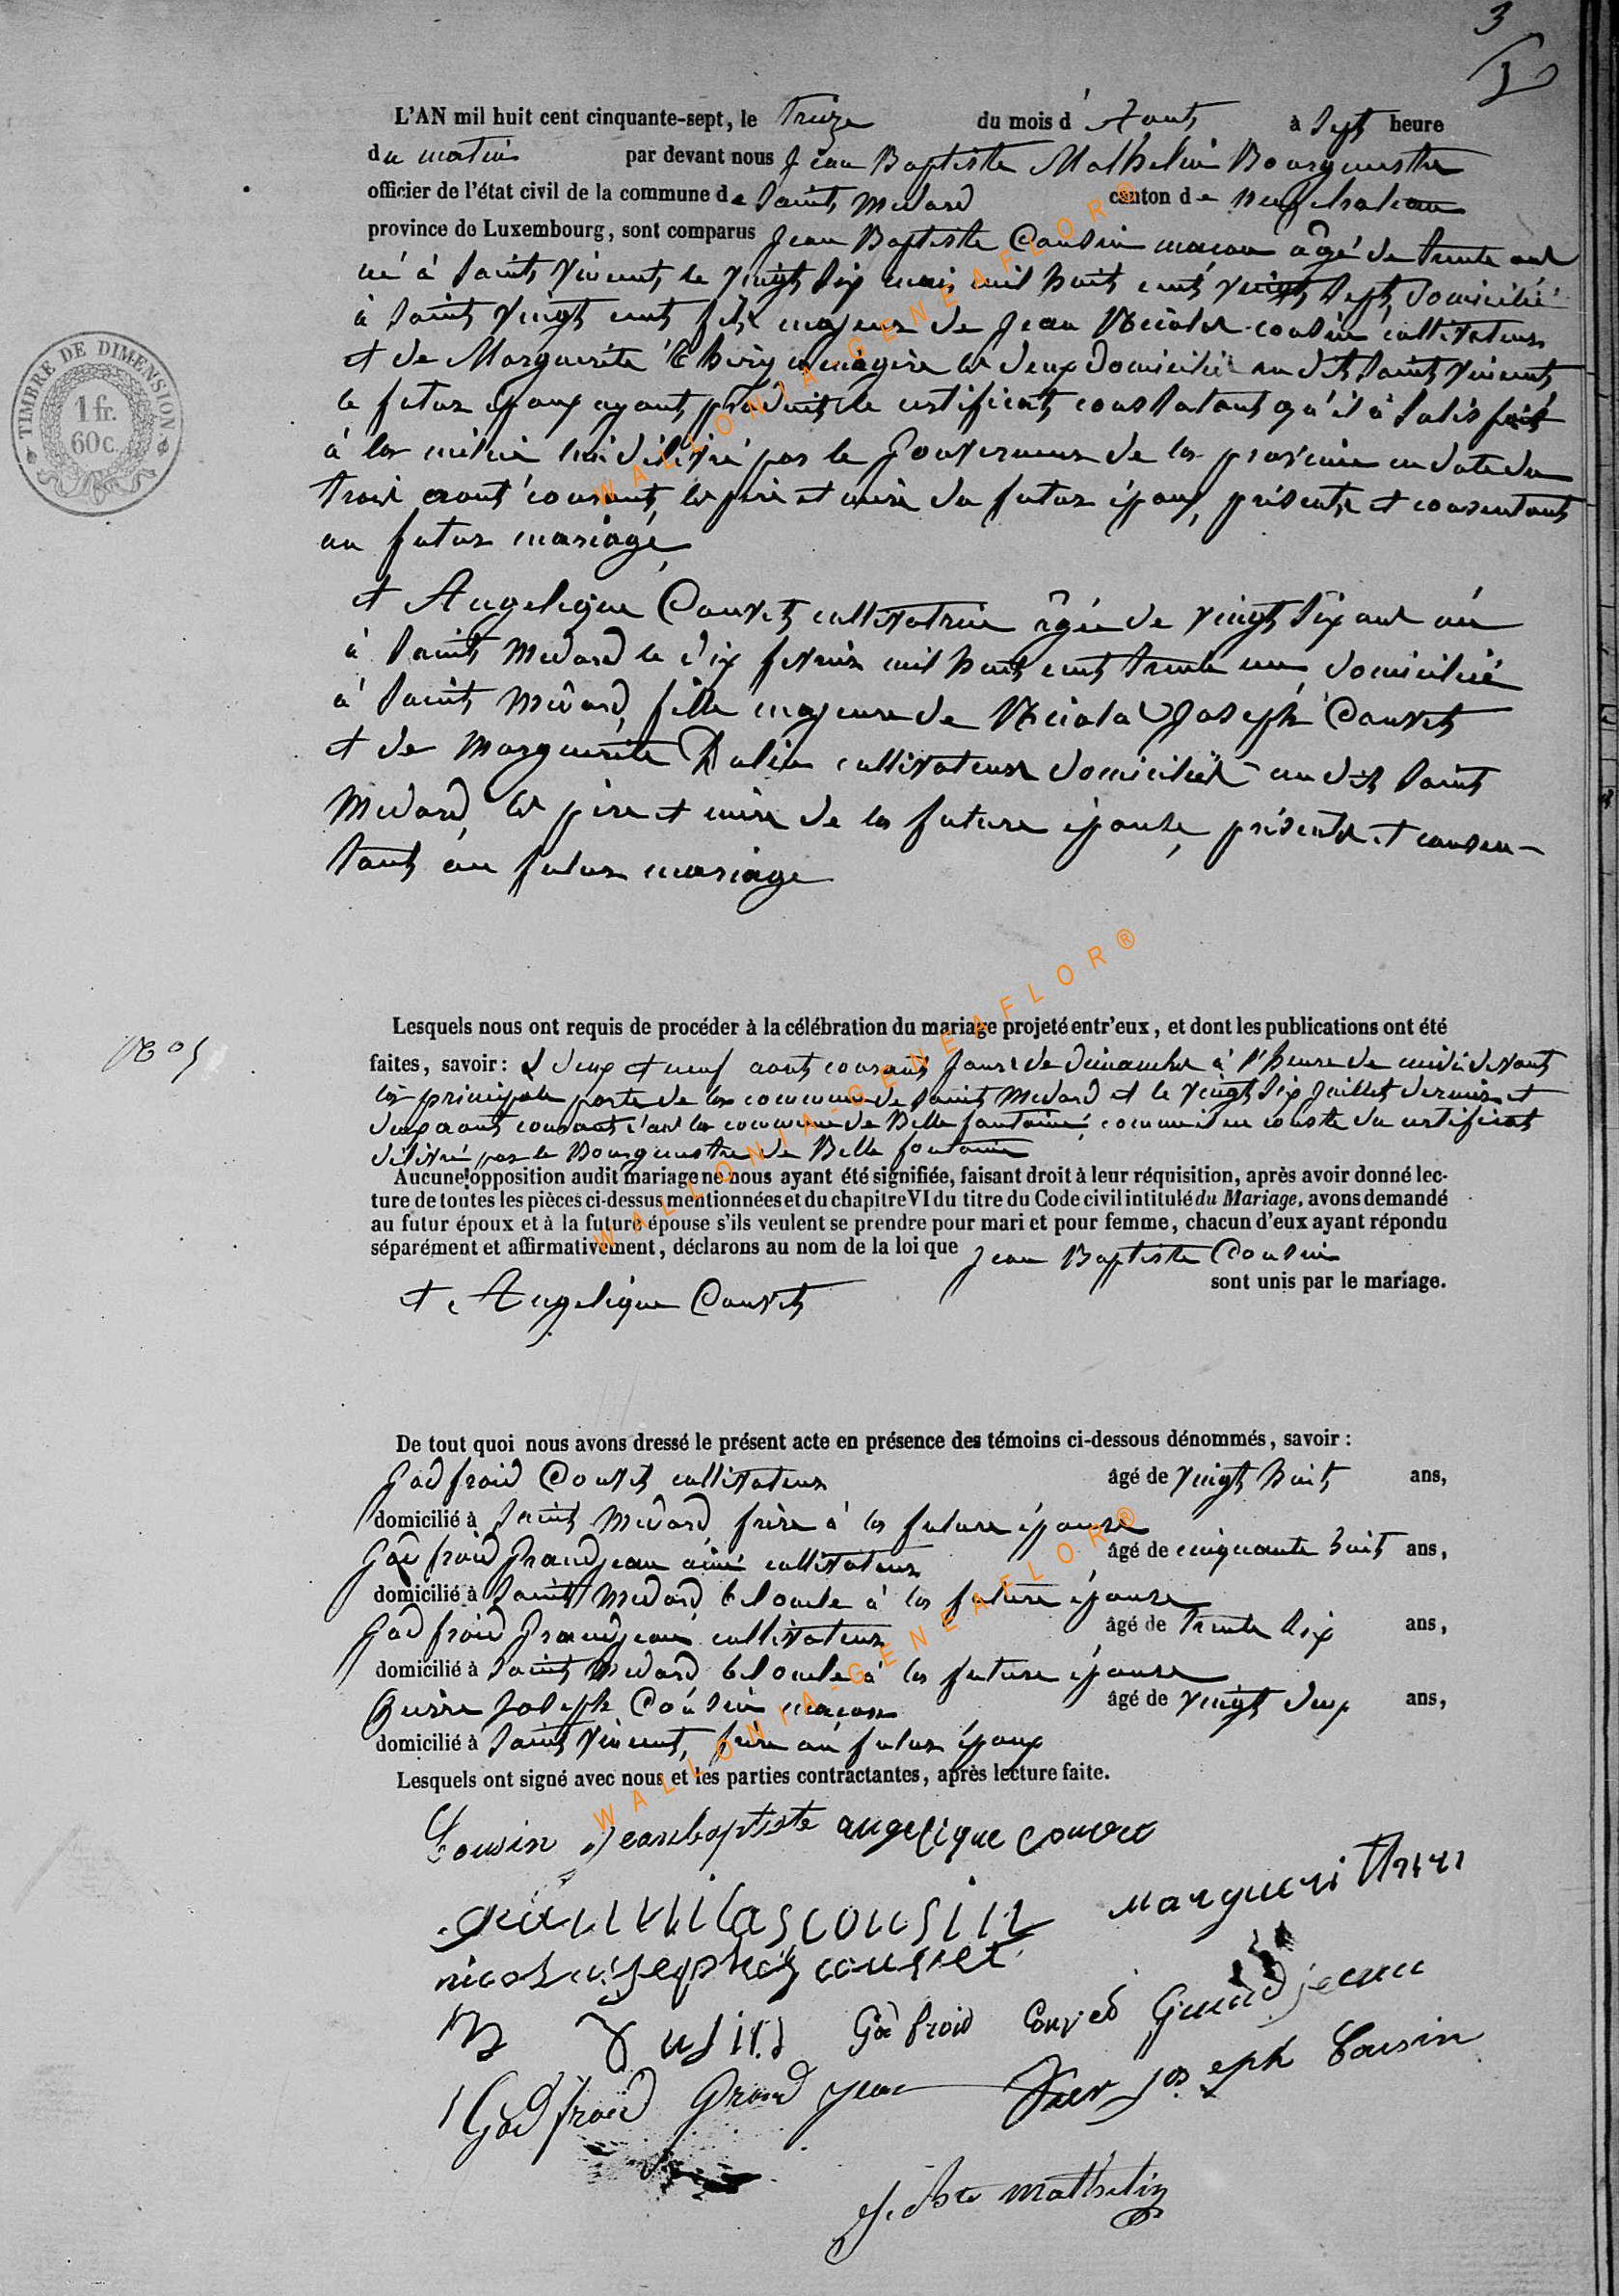 3
L'AN mil huit cent cinquante-sept, le treize du mois d'Aout à sept heure
du matin par devant nous Jean Baptiste Mathelin Bourguestre
officier de l'état civil de la commune de Saint Medard canton de neufchateau
province de Luxembourg, sont comparus Jean Baptiste Cousin macon âgé de trente ans
né à Saint Vincent le vingt six mai mil huit cent vingt sept, domicilié
à Saint Vingt cent fils majeur de Jean Nicolas cousin cultivateur
et de Marguerite Thiry menagère les deux domiciliés au dit Saint Vincent
le futur epoux ayant produit le certificat constatant qu'il à satisfait
à la milice lui délivré par le Gouverneur de la province en date du
trois aout courant, les père et mère du futur époux, présents et consentants
au futur mariage,
et Angelique Couvet cultivatrice âgée de vingt six ans née
à Saint Medard le dix fevrier mil huit cent trente un domiciliée
à Saint Médard, fille majeure de Nicolas Joseph Couvet
et de Marguerite cultivateurs domiciliés au dit Saint
Medard, les père et mère de la future épouse, présents et consen-
tants au futur mariage
TIMBRE DE DIMENSION
1 fr.
60 c.
N° 5
Lesquels nous ont requis de procéder à la célébration du mariage projeté entr'eux, et dont les publications ont été
faites, savoir: deux et neuf aout courant jours de dimanche à l'heure de midi devant
la principale porte de la commune de Saint Medard et le vingt six juillet dernier et
deux aout courant la commune de Belle fontaine, comme il en conste du certificat
délivré par le Bourguestre de Belle fontaine
Aucune opposition audit mariage ne nous ayant été signifiée, faisant droit à leur réquisition, après avoir donné lec-
ture de toutes les pièces ci-dessus mentionnées et du chapitre VI du titre du Code civil intitulé du Mariage, avons demandé
au futur époux et à la future épouse s'ils veulent se prendre pour mari et pour femme, chacun d'eux ayant répondu
séparément et affirmativement, déclarons au nom de la loi que Jean Baptiste Cousin
et Angelique Couvet sont unis par le mariage.
De tout quoi nous avons dressé le présent acte en présence des témoins ci-dessous dénommés, savoir:
Godfroid Couvet cultivateur âgé de vingt huit ans,
domicilié à Saint Médard, frère à la future épouse
Godfroid Grandjean ainé cultivateur âgé de cinquante huit ans,
domicilié à Saint Medard, bel oncle à la future épouse
Godfroid Grandjean cultivateur âgé de trente six ans,
domicilié à Saint Medard, bel oncle à la future épouse
Pierre Joseph Cousin macon âgé de vingt deux ans,
domicilié à Saint Vincent, frère au futur époux
Lesquels ont signé avec nous et les parties contractantes, après lecture faite.
Cousin Jeanbaptiste angelique couvet
jean nicolas cousin Margueri thiri
nicolas joseph couvet
Godfroid Couved Grandjean
Godfroid Grand jean joseph Cousin
J. Bte Mathelin
WALLONIA-GENEAFLOR®
WALLONIA-GENEAFLOR®
WALLONIA-GENEAFLOR®